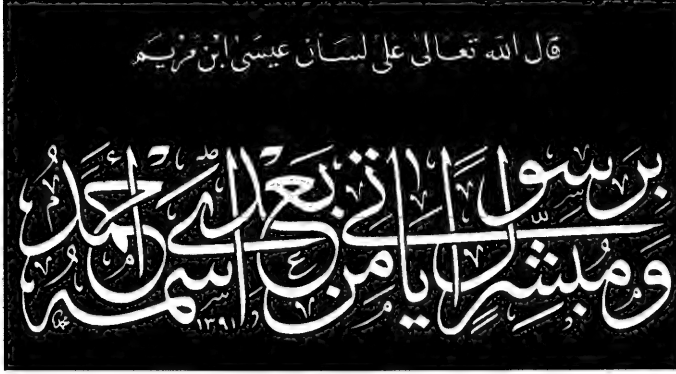 قال الله تعالى على لسان عيسى ابن مريم
ومبشرا برسول ياتي من بعدي اسمه احمد
١٣٩١